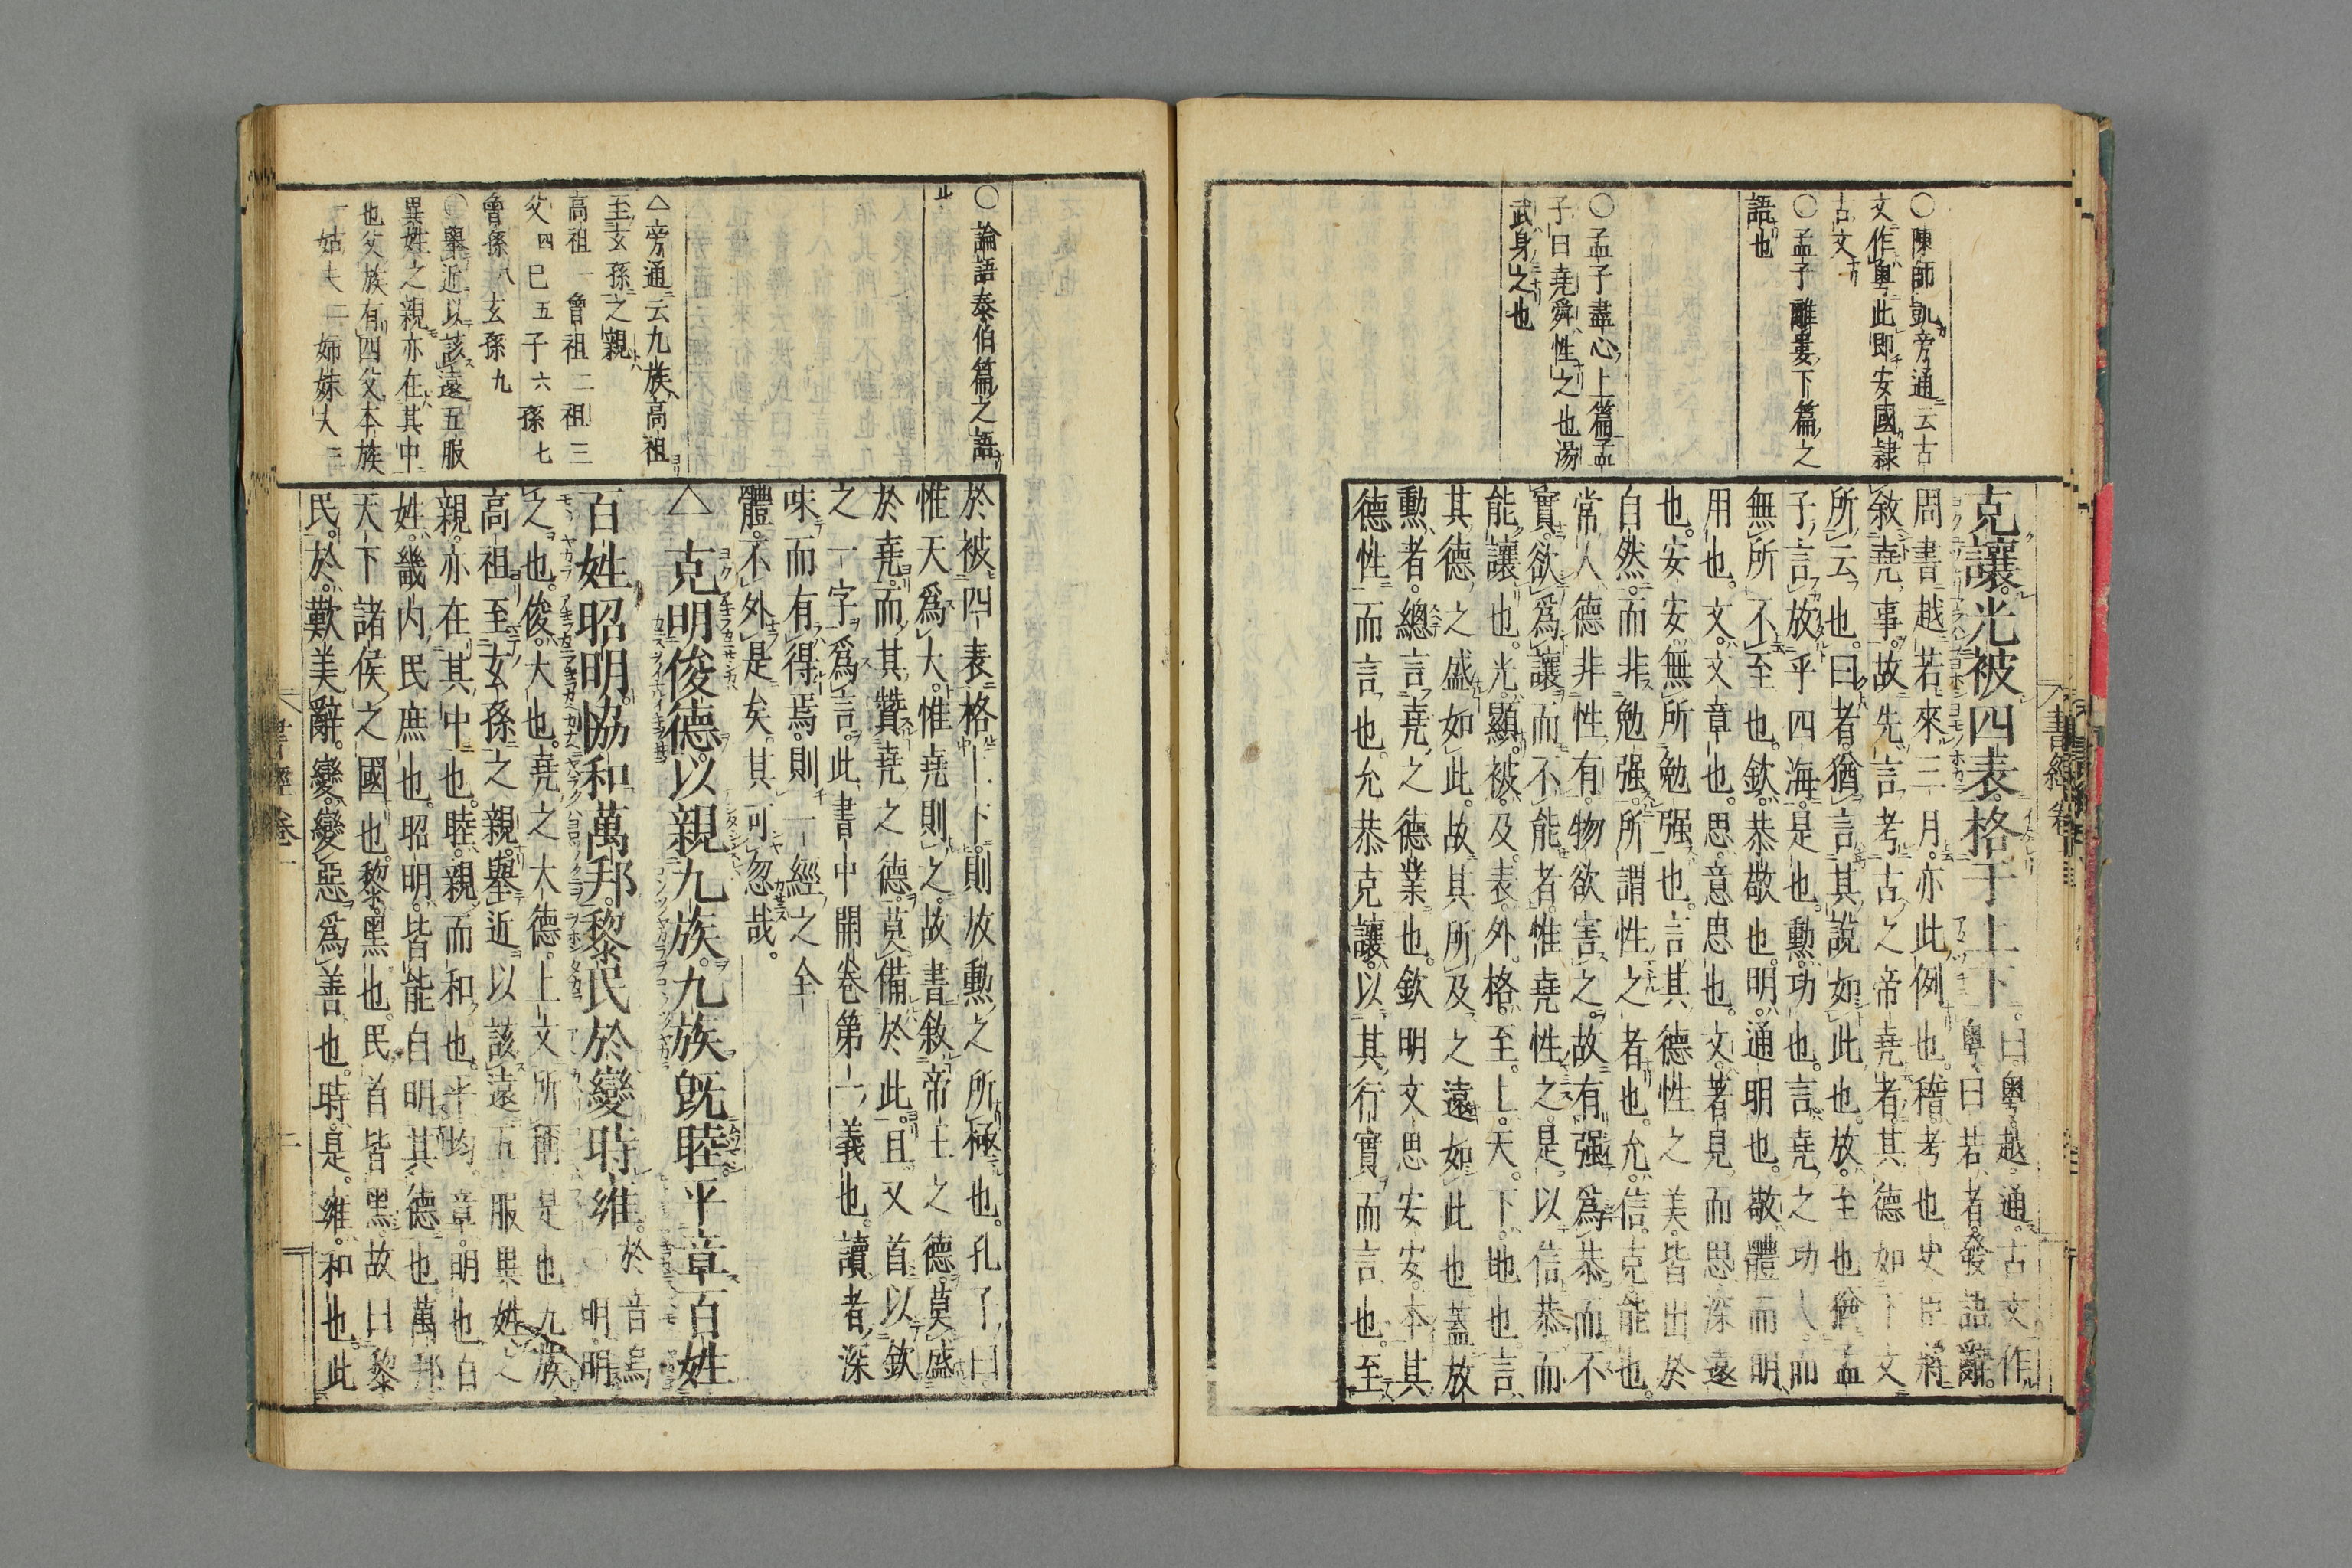 書經卷一
○陳師凱旁通云古
文作粤此即安國隷
古文
○孟子離婁下篇之
語也
○孟子盡心上篇孟
子曰堯舜性之也湯
武身之也
克讓。光被四表。格于上下。曰。粤越通。古文作
粤。曰若者。發語辭。
周書越若來三月。亦此例也。稽。考也。史臣將
敘堯事。故先言考古之帝堯者。其德如下文
所云也。曰者。猶言其說如此也。放。至也。猶孟
子言放乎四海。是也。勳。功也。言堯之功大而
無所不至也。欽。恭敬也。明。通明也。敬體而明
用也。文。文章也。思。意思也。文。著見而思深遠
也。安安。無所勉强也。言其德性之美。皆出於
自然。而非勉强。所謂性之者也。允。信。克。能也。
常人德非性有。物欲害之。故有强爲恭而不
實。欲爲讓而不能者。惟堯性之。是以信恭而
能讓也。光。顯。被。及。表。外。格。至。上。天。下。地也。言
其德之盛如此。故其所及之遠如此也。蓋放
勳者。總言堯之德業也。欽明文思安安。本其
德性而言也。允恭克讓。以其行實而言也。至
○論語泰伯篇之語
止
△旁通云九族高祖
至玄孫之親
高祖一曾祖二祖三
父四己五子六孫七
曾孫八玄孫九
○舉近以該遠五服
異姓之親亦在其中
也父族有四父本族
一姑夫二姉妹夫三
於被四表格上下。則放勳之所極也。孔子曰
惟天爲大。惟堯則之。故書敘帝王之德。莫盛
於堯。而其贊堯之德。莫備於此。且又首以欽
之一字爲言。此書中開卷第一義也。讀者深
味而有得焉。則一經之全
體。不外是矣。其可忽哉。
△克明俊德。以親九族。九族旣睦。平章百姓。
百姓昭明。協和萬邦。黎民於變時雍。於音烏
○明。明
之也。俊。大也。堯之大德。上文所稱是也。九族
高祖至玄孫之親。舉近以該遠。五服異姓之
親。亦在其中也。睦。親而和也。平。均。章。明也。百
姓。畿内民庶也。昭明。皆能自明其德也。萬邦
天下諸侯之國也。黎。黑也。民首皆黑。故曰黎
民。於。歎美辭。變。變惡爲善也。時。是。雍。和也。此
書經卷一
二